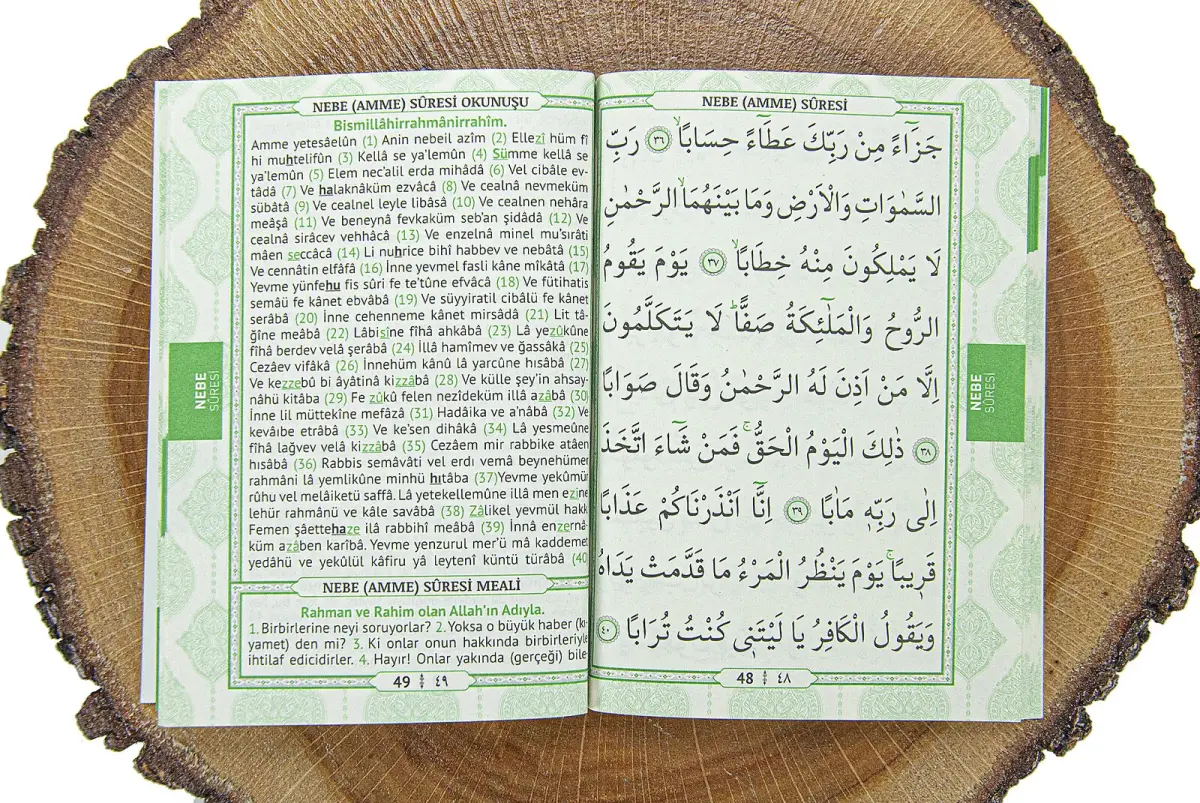 NEBE (AMME) SÛRESİ
جَزَٓاءً مِنْ رَبِّكَ عَطَٓاءً حِسَابًاۙ ﴿٣٦﴾ رَبِّ
السَّمٰوَاتِ وَالْاَرْضِ وَمَا بَيْنَهُمَا الرَّحْمٰنِ
لَا يَمْلِكُونَ مِنْهُ خِطَابًاۙ ﴿٣٧﴾ يَوْمَ يَقُومُ
الرُّوحُ وَالْمَلٰٓئِكَةُ صَفًّاۜ لَا يَتَكَلَّمُونَ
اِلَّا مَنْ اَذِنَ لَهُ الرَّحْمٰنُ وَقَالَ صَوَابًا
﴿٣٨﴾ ذٰلِكَ الْيَوْمُ الْحَقُّۚ فَمَنْ شَٓاءَ اتَّخَذَ
اِلٰى رَبِّهٖ مَاٰبًا ﴿٣٩﴾ اِنَّٓا اَنْذَرْنَاكُمْ عَذَابًا
قَرٖيبًاۚ يَوْمَ يَنْظُرُ الْمَرْءُ مَا قَدَّمَتْ يَدَاهُ
وَيَقُولُ الْكَافِرُ يَا لَيْتَنٖى كُنْتُ تُرَابًا ﴿٤٠﴾
48 ٤٨
NEBE
SÛRESİ
NEBE (AMME) SÛRESİ OKUNUŞU
Bismillâhirrahmânirrahîm.
Amme yetesâelûn (1) Anin nebeil azîm (2) Ellezî hüm fî
hi muhtelifûn (3) Kellâ se ya'lemûn (4) Sümme kellâ se
ya'lemûn (5) Elem nec'alil erda mihâdâ (6) Vel cibâle ev-
tâdâ (7) Ve halaknâküm ezvâcâ (8) Ve cealnâ nevmeküm
sübâtâ (9) Ve cealnel leyle libâsâ (10) Ve cealnen nehâra
meâşâ (11) Ve beneynâ fevkaküm seb'an şidâdâ (12) Ve
cealnâ sirâcev vehhâcâ (13) Ve enzelnâ minel mu'sırâti
mâen seccâcâ (14) Li nuhrice bihî habbev ve nebâtâ (15)
Ve cennâtin elfâfâ (16) İnne yevmel fasli kâne mîkâtâ (17)
Yevme yünfehu fis sûri fe te'tûne efvâcâ (18) Ve fütihatis
semâü fe kânet ebvâbâ (19) Ve süyyiratil cibâlü fe kânet
serâbâ (20) İnne cehenneme kânet mirsâdâ (21) Lit tâ-
ğîne meâbâ (22) Lâbisîne fîhâ ahkâbâ (23) Lâ yezûkûne
fîhâ berdev velâ şerâbâ (24) İllâ hamîmev ve ğassâkâ (25)
Cezâev vifâkâ (26) İnnehüm kânû lâ yarcûne hısâbâ (27)
Ve kezzebû bi âyâtinâ kizzâbâ (28) Ve külle şey'in ahsay-
nâhü kitâba (29) Fe zûkû felen nezîdeküm illâ azâbâ (30)
İnne lil müttekîne mefâzâ (31) Hadâika ve a'nâbâ (32) Ve
kevâıbe etrâbâ (33) Ve ke'sen dihâkâ (34) Lâ yesmeûne
fîhâ lağvev velâ kizzâbâ (35) Cezâem mir rabbike atâen
hısâbâ (36) Rabbis semâvâti vel erdı vemâ beynehümer
rahmâni lâ yemlikûne minhü hıtâba (37)Yevme yekûmür
rûhu vel melâiketü saffâ. Lâ yetekellemûne illâ men ezine
lehür rahmânü ve kâle savâbâ (38) Zâlikel yevmül hakk
Femen şâettehaze ilâ rabbihî meâbâ (39) İnnâ enzernâ
küm azâben karîbâ. Yevme yenzurul mer'ü mâ kaddemet
yedâhü ve yekûlül kâfiru yâ leytenî küntü türâbâ (40
NEBE (AMME) SÛRESİ MEALİ
Rahman ve Rahim olan Allah'ın Adıyla.
1. Birbirlerine neyi soruyorlar? 2. Yoksa o büyük haber (kı
yamet) den mi? 3. Ki onlar onun hakkında birbirleriyle
ihtilaf edicidirler. 4. Hayır! Onlar yakında (gerçeği) bile
49 ٤٩
NEBE
SÛRESİ